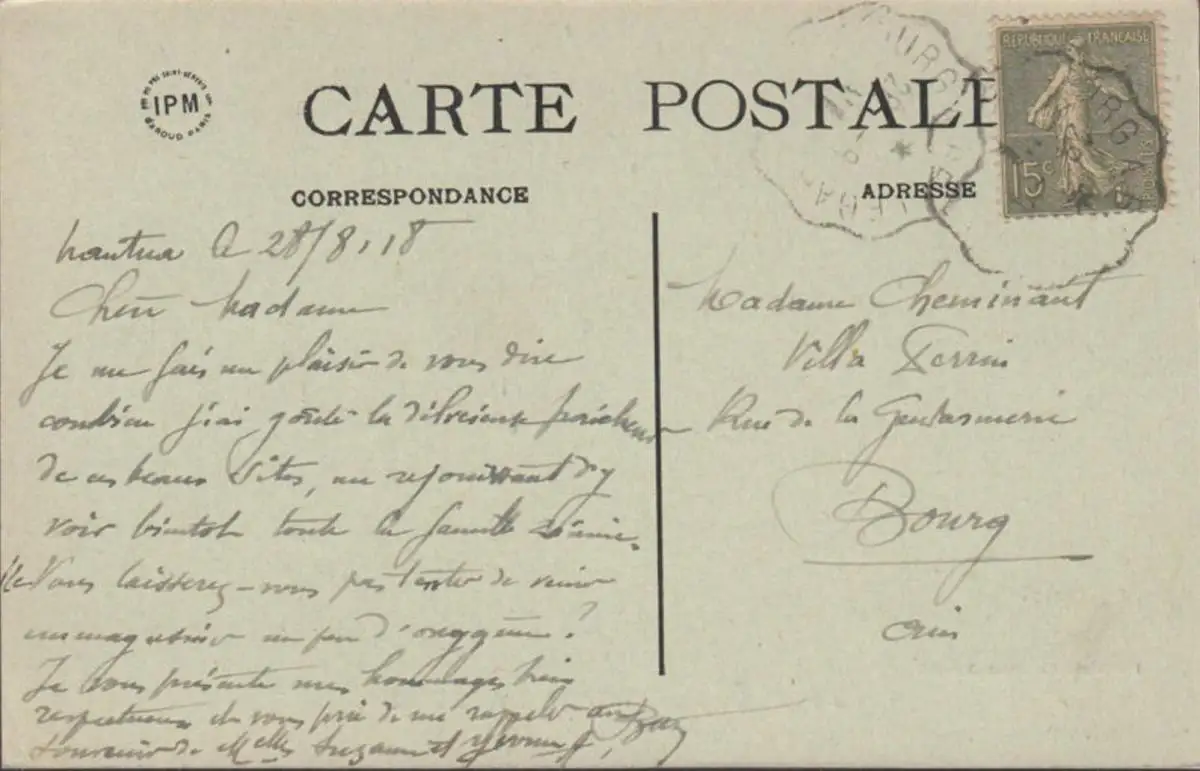 IPM
BAROUD PARIS
CARTE POSTALE
REPUBLIQUE FRANCAISE
15c
CORRESPONDANCE
ADRESSE
Nantua le 28/8/18
Chère Madame
Je me fais un plaisir de vous dire
combien j'ai goûté la délicieuse fraîcheur
de ces beaux sites, me rejouissant d'y
voir bientôt toute la famille réunie.
Ne Vous laisserez-vous pas tenter de venir
emmagasiner un peu d'oxygène?
Je vous présente mes hommages bien
respectueux et vous prie de me rappeler au
souvenir de Melles Suzanne et Yvonne
Madame Cheminant
Villa Perrin
Rue de la Gendarmerie
Bourg
Ain